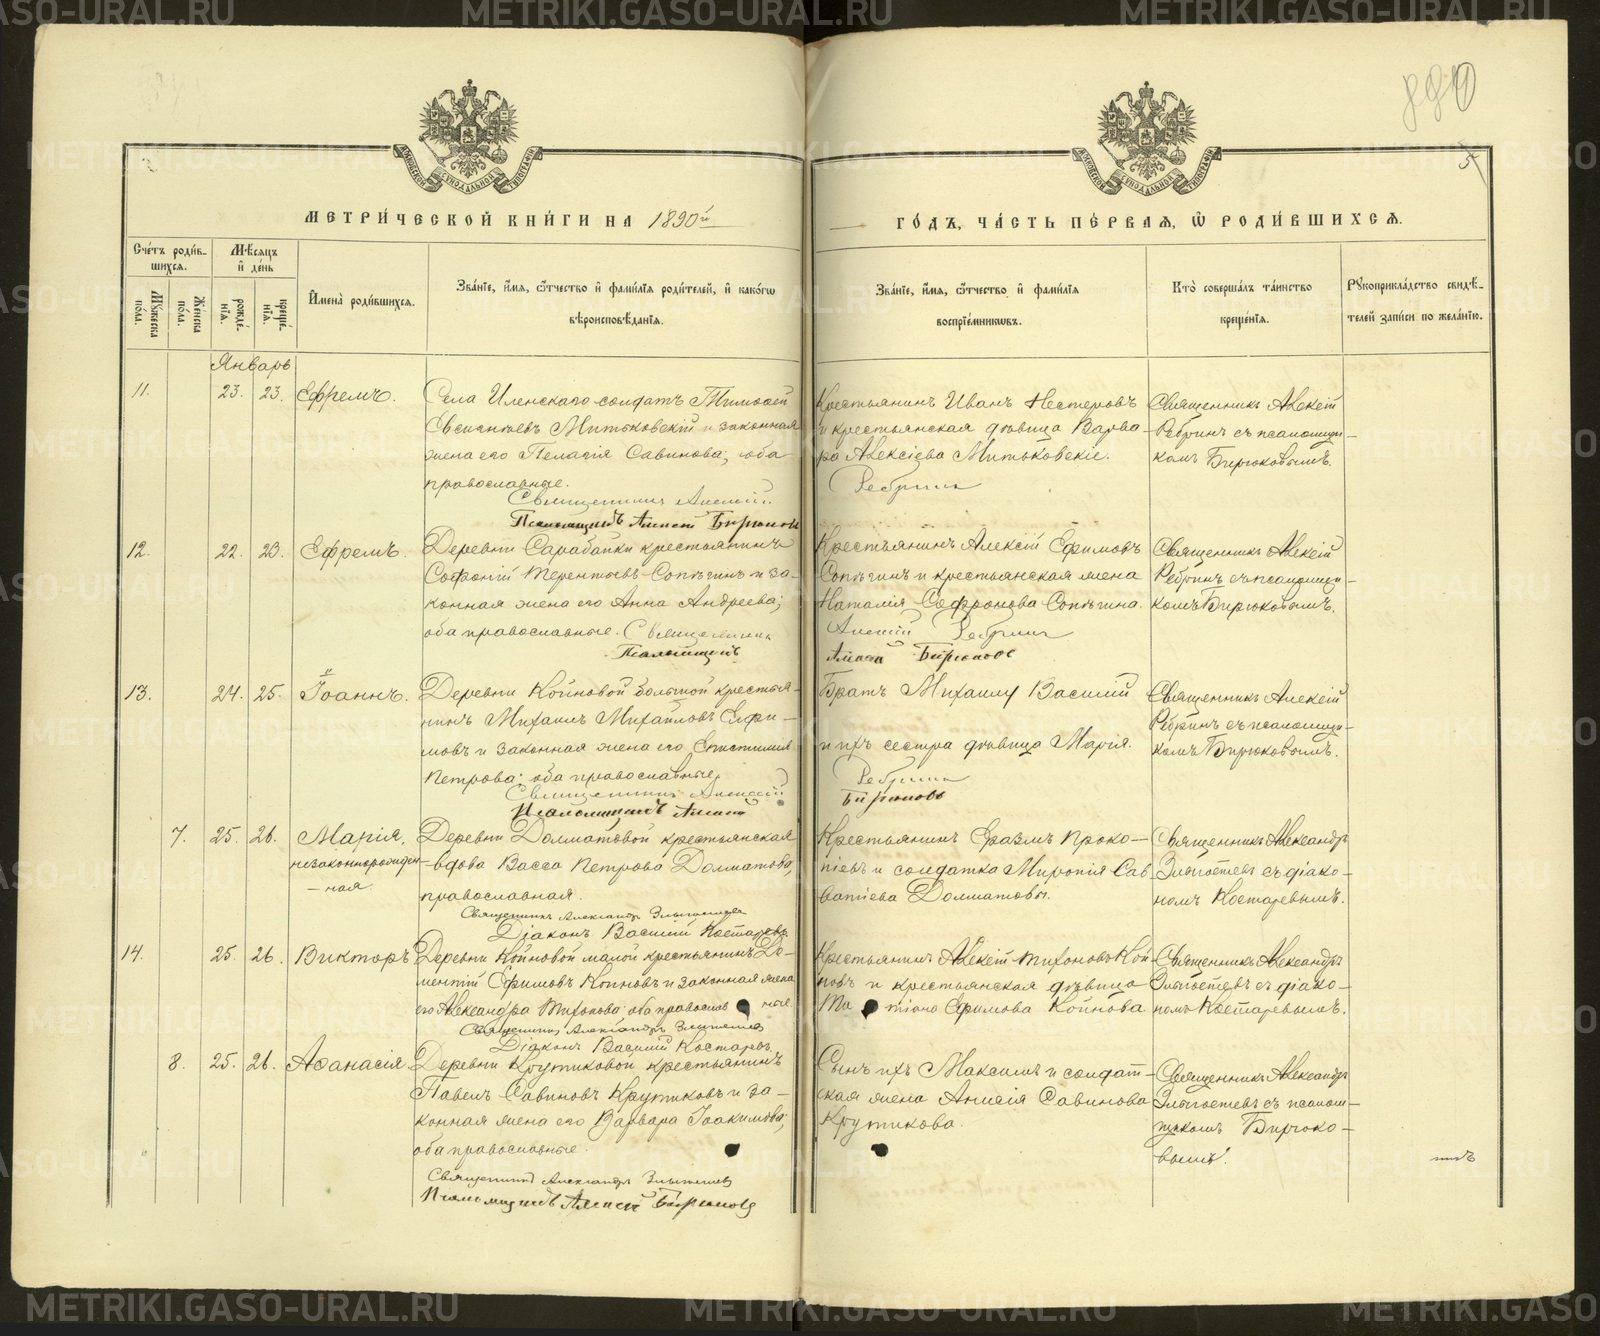 METRIKI.GASO-URAL.RU
880
5
МЕТРИ́ЧЕСКОЙ КНИ́ГИ НА 1890й
ГО́ДЪ, ЧА́СТЬ ПЕ́РВАѦ, Ѽ РОДИ́ВШИХСѦ.
Сче́тъ роди́в-
шихся.
Мѣ́сяцъ
и҆ де́нь
Мꙋ́жеска
по́ла.
Же́нска
по́ла.
рожде́-
нїя.
креще́-
нїя.
И҆мена̀ роди́вшихся.
Зва́нїе, и҆́мя, ѻ҆́тчество и҆ фами́лїя роди́телей, и҆ како́гѡ
вѣроисповѣ́данїя.
Зва́нїе, и҆́мя, ѻ҆́тчество и҆ фами́лїя
воспрїе́мникѡвъ.
Кто̀ соверша́лъ та́инство
креще́нїя.
Рꙋкоприкла́дство свидѣ́-
телей за́писи по жела́нїю.
Январь
11.
23.
23.
Ефремъ.
Села Иленскаго солдатъ Тимофей
Митьковскій и законная
жена его Пелагія Савинова; оба
православные.
Священникъ Алексій
Псаломщикъ Алексей Бирюковъ
Крестьянинъ Иванъ Нестеровъ
и крестьянская дѣвица Варва-
ра Алексіева Митьковскіе.
Ребринъ
Священникъ Алексій
Ребринъ съ псаломщи-
комъ Бирюковымъ.
12.
22.
23.
Ефремъ.
Деревни Сарабайки крестьянинъ
Софоній Терентьевъ Сопѣгинъ и за-
конная жена его Анна Андреева;
оба православные. Священникъ
Псаломщикъ
Крестьянинъ Алексій Ефимовъ
Сопѣгинъ и крестьянская жена
Наталія Софронова Сопѣгина.
Алексій Ребринъ
Алексей Бирюковъ
Священникъ Алексій
Ребринъ съ псаломщи-
комъ Бирюковымъ.
13.
24.
25.
Іоаннъ.
Деревни Койновой большой крестья-
нинъ Михаилъ Михайловъ Ефи-
мовъ и законная жена его Епистимія
Петрова; оба православные,
Священникъ Алексій
Псаломщикъ Алексей
Братъ Михаилу Василій
и ихъ сестра дѣвица Марія.
Ребринъ
Бирюковъ
Священникъ Алексій
Ребринъ съ псаломщи-
комъ Бирюковымъ.
7.
25.
26.
Марія,
незаконнорожден-
ная
Деревни Долматовой крестьянская
вдова Васса Петрова Долматова,
православная.
Священникъ Александръ
Діаконъ Василій Костаревъ
Крестьянинъ Еразмъ Проко-
піевъ и солдатка Миропія Сав
ватіева Долматовы.
Священникъ Александръ
съ діако-
номъ Костаревымъ.
14.
25.
26.
Викторъ
Деревни Койновой малой крестьянинъ До-
ментій Ефимовъ Койновъ и законная жена
его Александра Тихонова; оба православ ные
Священникъ Александръ
Діаконъ Василій Костаревъ
Крестьянинъ Алексій Тихоновъ Кой
новъ и крестьянская дѣвица
Ефимова Койнова
Священникъ Александръ
съ діако-
номъ Костаревымъ.
8.
25.
26.
Аѳанасія
Деревни Крутиковой крестьянинъ
Павелъ Савиновъ Крутиковъ и за-
конная жена его Варвара Іоакимова;
оба православные.
Священникъ Александръ
Псаломщикъ Алексей Бирюковъ
Сынъ ихъ Максимъ и солдат-
ская жена Анисія Савинова
Крутикова.
Священникъ Александръ
съ псалом-
щикомъ Бирюко-
вымъ.